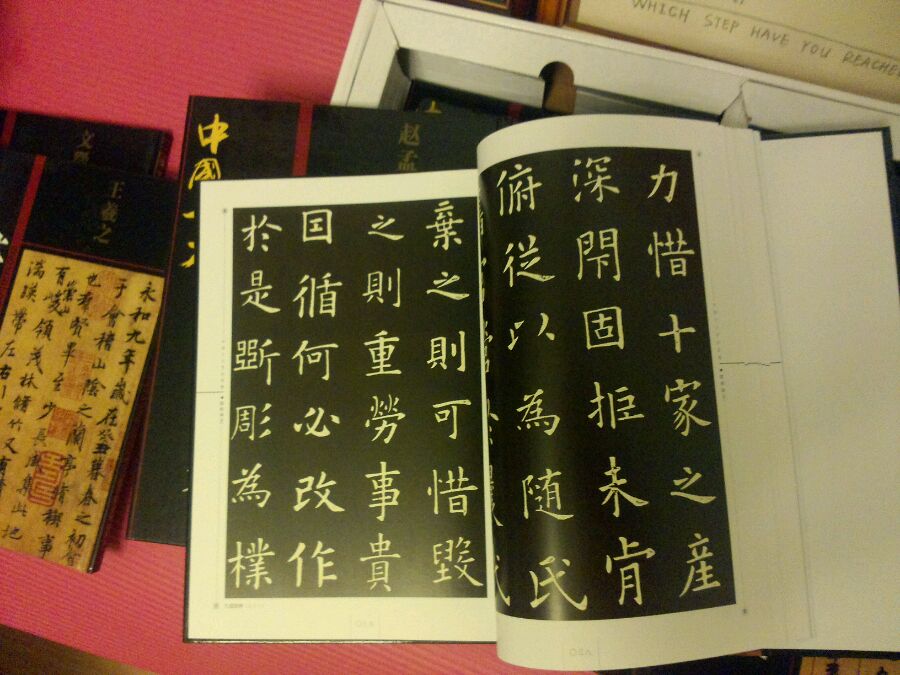 WHICH STEP HAVE YOU REACHE
中國
赵孟
文
王羲之
永和九年歲在癸丑暮春之初會
于會稽山陰之蘭亭脩稧事
也群賢畢至少長咸集此地
有崇山峻領茂林脩竹又有
湍暎帶左右
力惜十家之産
深閇固拒未肯
俯従以為隨氏
棄之則可惜毀
之則重勞事貴
因循何必改作
於是斵彫為樸